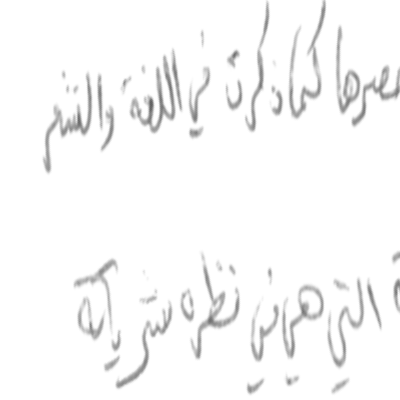 عصرها كما ذكرت في اللغة والشعر
ة التي هي في نظره شر يأتيه